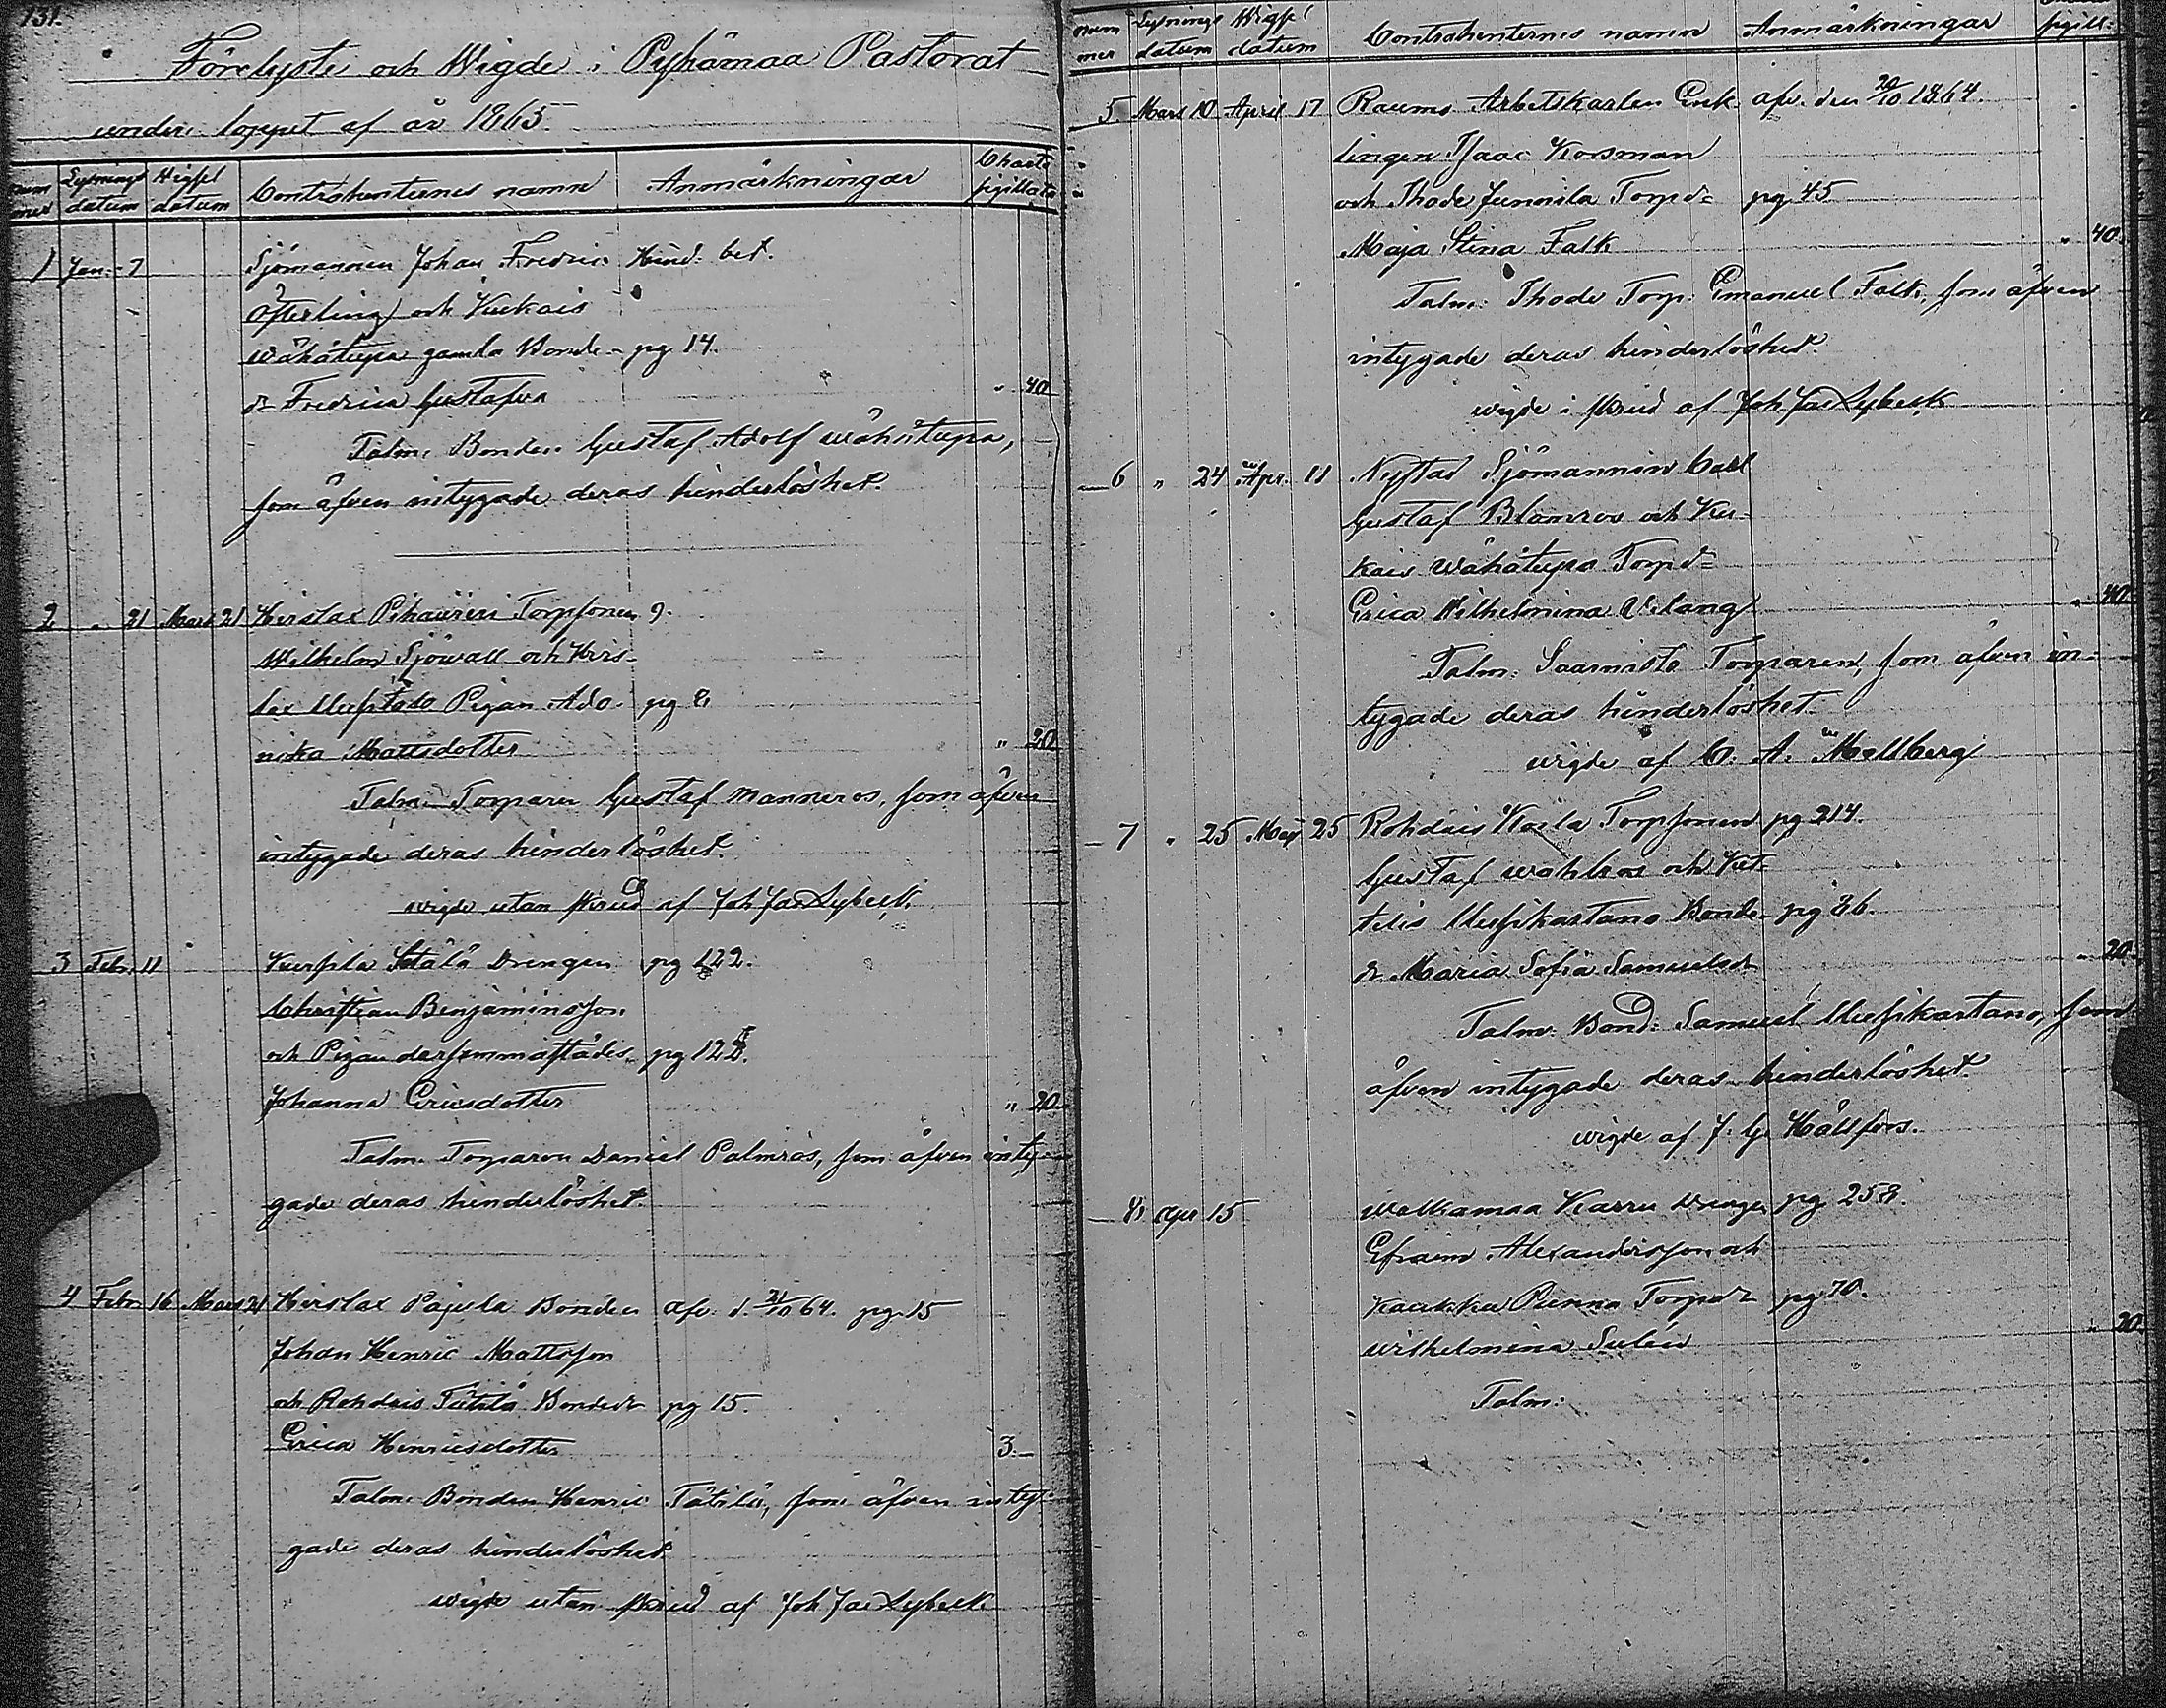 131.
Förelyste och Wigde i Pyhämaa Pastorat
under loppet af år 1865.
num mer Lysnings datum Wigsel datum Contrahenternes namn Anmärkningar Charta sigillata
1 Jan. 7 Sjömannen Johan Fredric Hind. bet.
Österling och Kukais
wähätupa gamla Bonde- pg 14.
dr Fredrica Gustafva " 40
Talm: Bonden Gustaf Adolf wähätupa,
som äfven intygade deras hinderlöshet.
2 " 21 Mars 21 Hirslax Pihaüreri Torpsonen 9.
Wilhelm Sjöwall och Hirs-
lax Uusitalo Pigan Ado- pg 8
nika Mattsdotter " 20
Talm: Torparen Gustaf Manneros, som äfven
intygade deras hinderlöshet.
wigde utan skrud af Joh Jac Lybeck.
3 Febr. 11 Kuisila Sätälä Drengen pg 122.
Christian Benjaminsson
och Pigan dersammastädes pg 122.
Johanna Ericsdotter " 20
Talm: Torparen Daniel Palmros, som äfven inty-
gade deras hinderlöshet.
4 Febr 16 Mars 21 Hirslax Pajula Bonden afv. d. 21/10 64. pg 15
Johan Henric Mattsson
och Rohdais Tätilä Bondedr pg 15.
Erica Henricsdotter 3.-
Talm: Bonden Henric Tätilä, som äfven inty-
gade deras hinderlöshet.
wigde utan skrud af Joh Jac Lybeck
num mer Lysnings datum Wigsel datum Contrahenternes namn Anmärkningar sigill.
5 Mars 10 April 17 Raumo Arbetskarlen Enk- afv. den 20/10 1864.
lingen Isaac Korsman
och Ihode Junnila Torpd= pg 45
Maja Stina Falk " 40.
Talm: Ihode Torp. Emanuel Falk, som äfven
intygade deras hinderlöshet.
wigde i skrud af Joh Jac Lybeck
6 " 24 Apr. 11 Nystad Sjömannen Carl
Gustaf Blomros och Ku-
kais Wähätupa Torpd=
Erica Wilhelmina Wilang " 40.
Talm: Saaristo Torparen, som äfven in-
tygade deras hinderlöshet.
wigde af C. A. Mallberg
7 " 25 Maj 25 Rohdais Koila Torpsonen pg 214.
Gustaf wahlros och Ket-
telis Uusikartano Bonde- pg 36.
dr Maria Sofia Samuelsdr " 20.
Talm: Bond: Samuel Uusikartano, som
äfven intygade deras hinderlöshet.
wigde af J. G. Hällfors.
8 Apr 15 Walkamaa Karru Drengen pg 258.
Efraim Alexandersson och
Kaukka Punna Torpdr pg 70.
Wilhelmina Sulin " 20.
Talm: